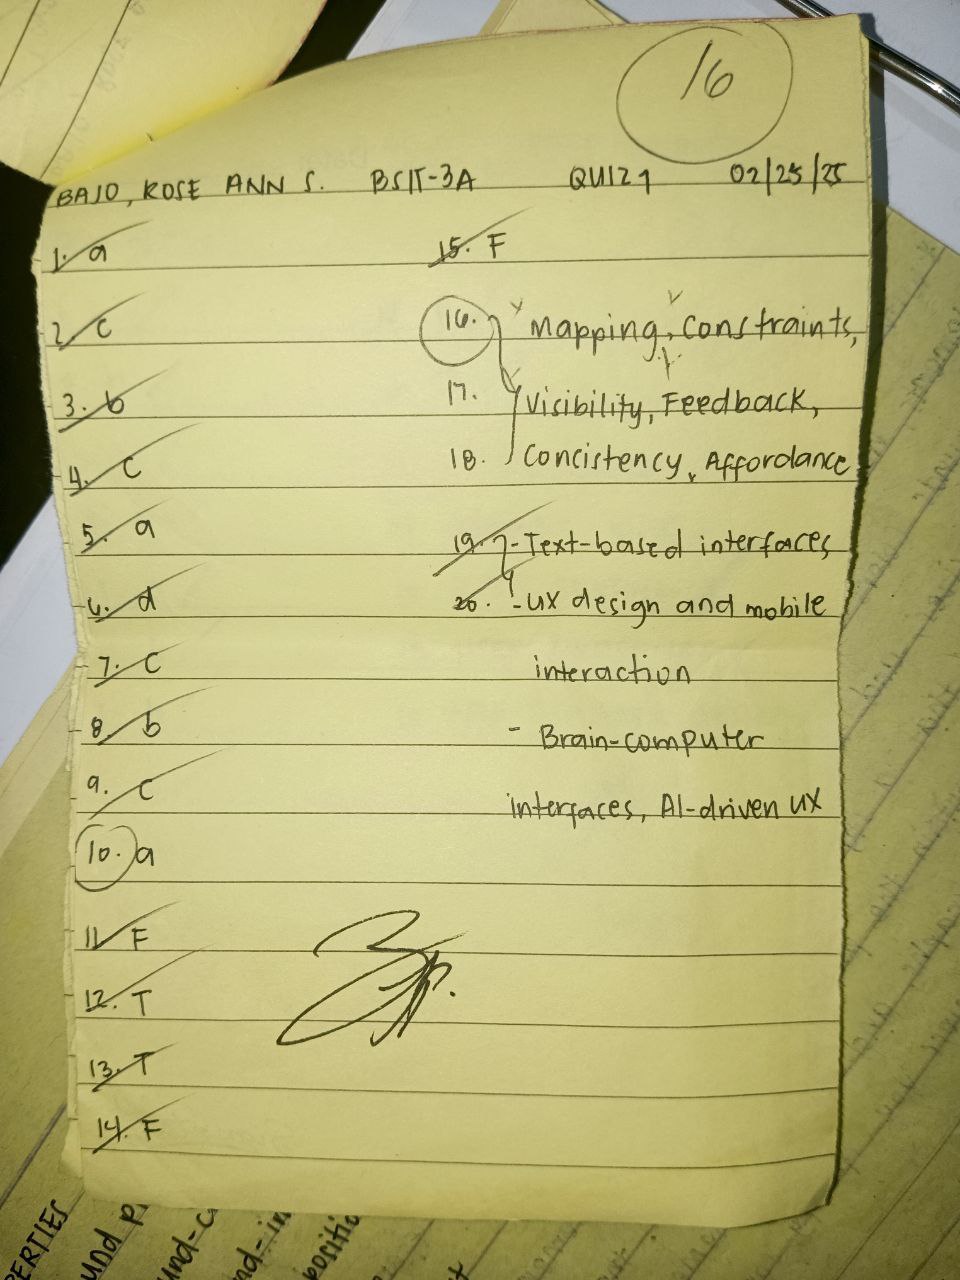 16
BAJO, ROSE ANN S. BSIT-3A QUIZ 1 02/25/25
1. a
2. c
3. b
4. c
5. a
6. d
7. c
8. b
9. c
10. a
11. F
12. T
13. T
14. F
15. F
16. Mapping, Constraints,
17. Visibility, Feedback,
18. Concistency, Affordance
19. - Text-based interfaces
20. - UX design and mobile
interaction
- Brain-computer
interfaces, AI-driven UX